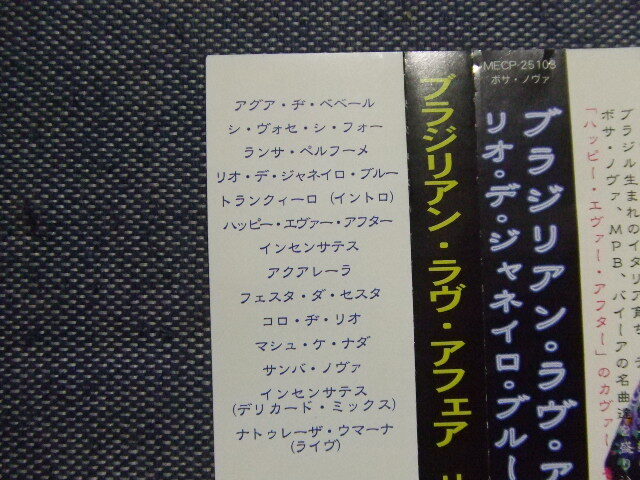 アグア・ヂ・ベベール
シ・ヴォセ・シ・フォー
ランサ・ペルフーメ
リオ・デ・ジャネイロ・ブルー
トランクィーロ (イントロ)
ハッピー・エヴァー・アフター
インセンサテス
アクアレーラ
フェスタ・ダ・セスタ
コロ・ヂ・リオ
マシュ・ケ・ナダ
サンバ・ノヴァ
インセンサテス
(デリカード・ミックス)
ナトゥレーザ・ウマーナ
(ライヴ)
ブラジリアン・ラヴ・アフェア
MECP-25103
ボサ・ノヴァ
ブラジリアン・ラヴ・ア
リオ・デ・ジャネイロ・ブルー
ブラジル生まれのイタリア育ち
ボサ・ノヴァ、MPB、バイーアの名曲達を盛り
「ハッピー・エヴァー・アフター」のカヴァー